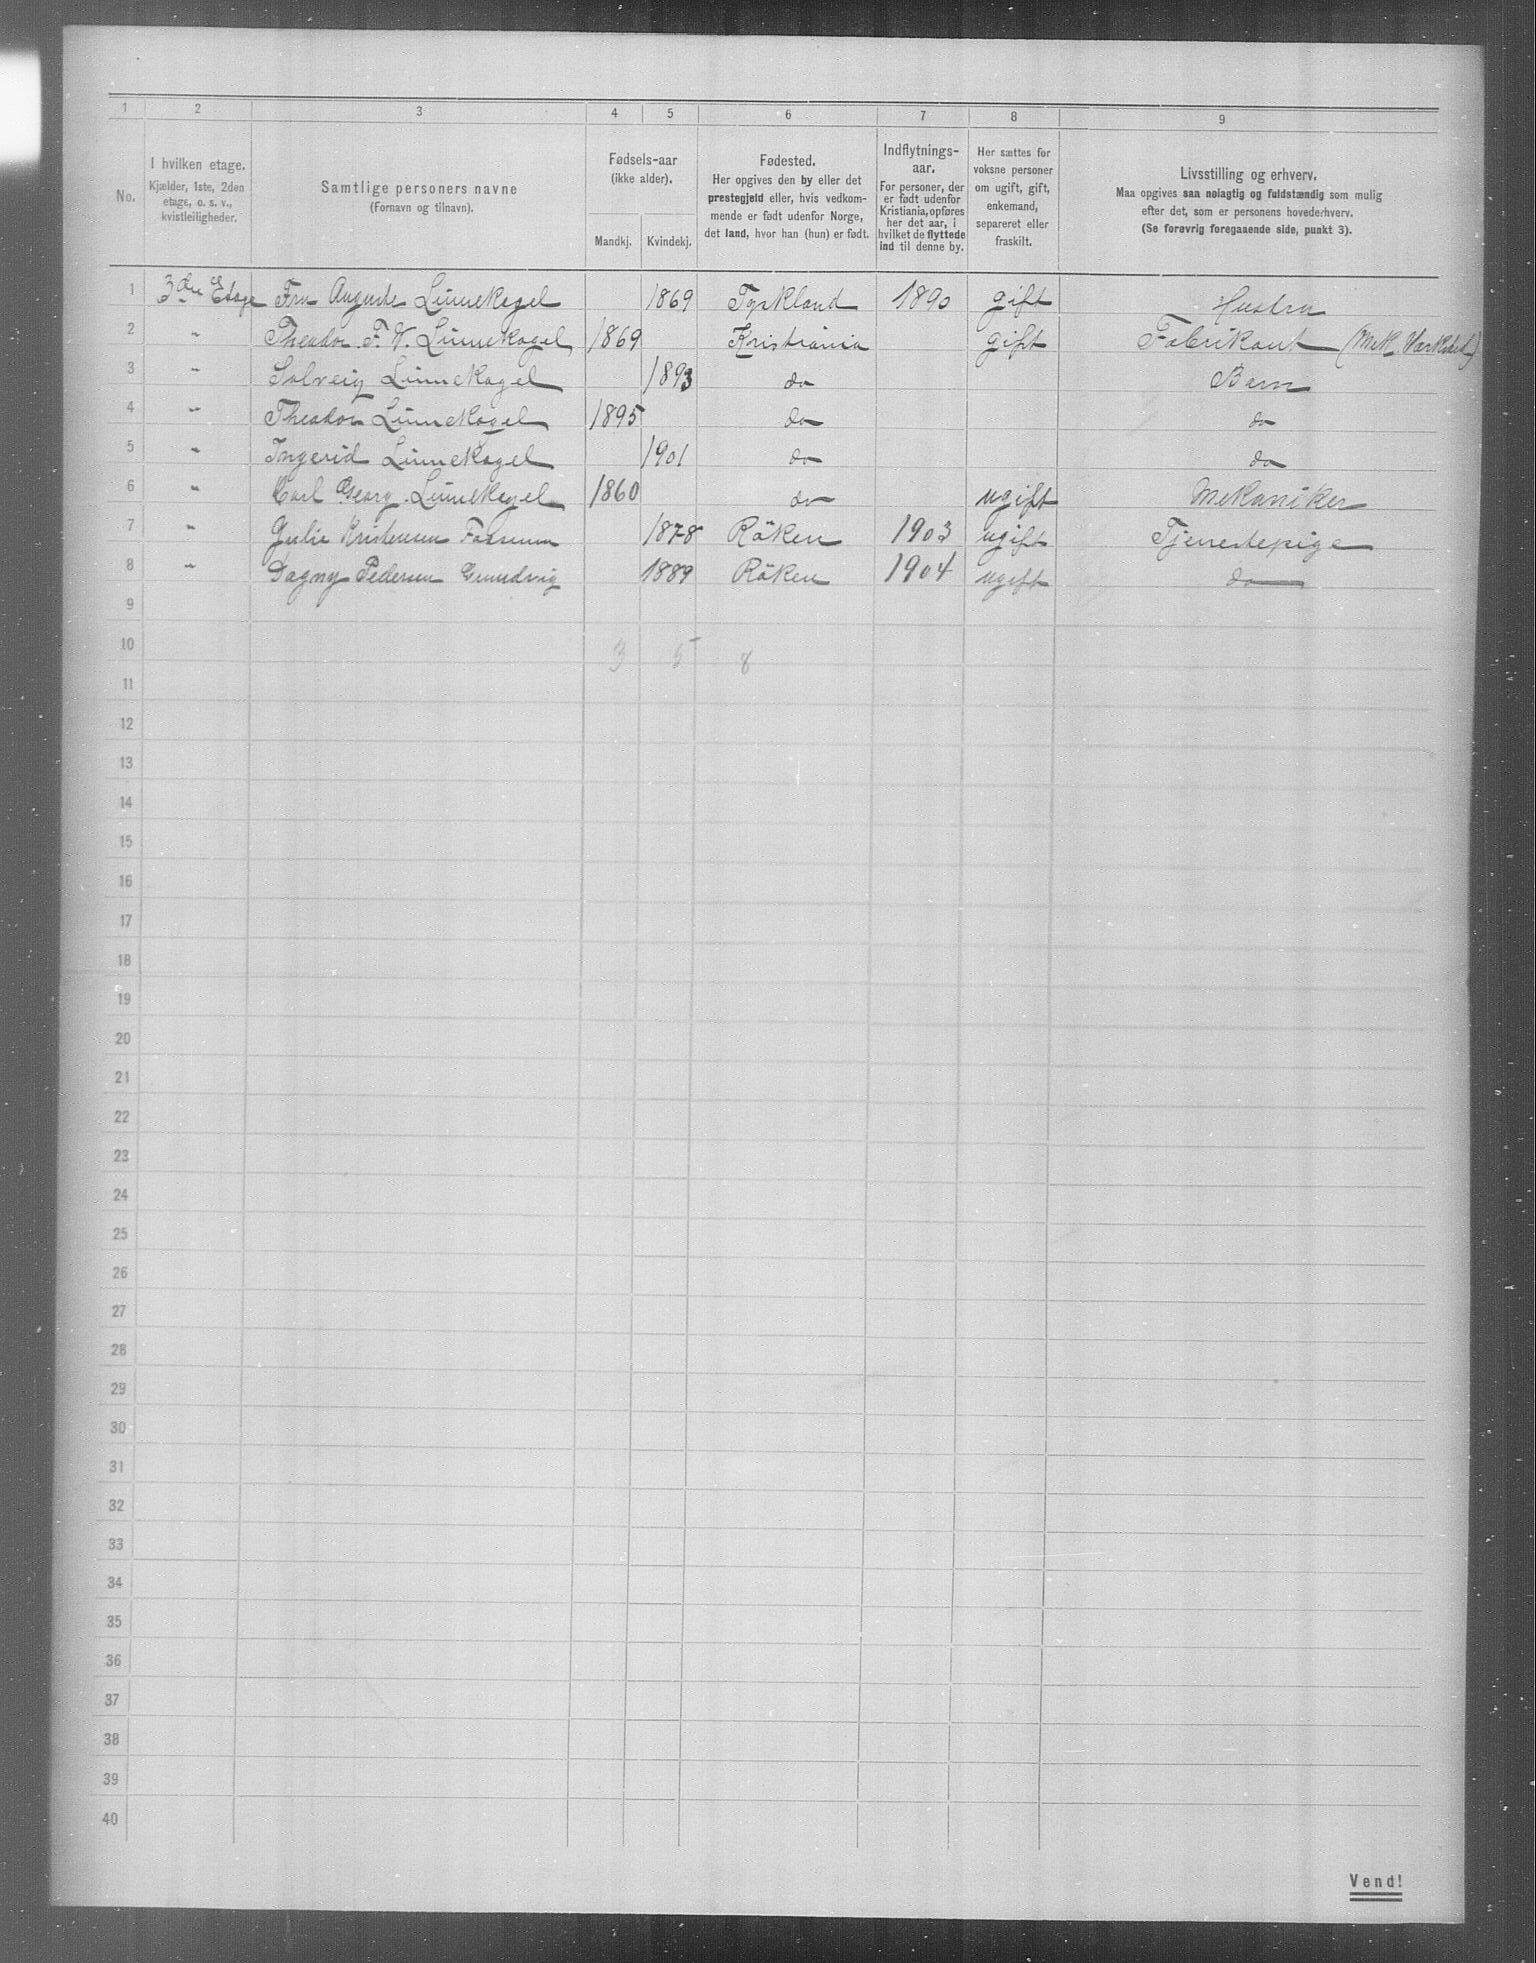 1 2 3 4 5 6 7 8 9
No.
I hvilken etage.
Kjælder, 1ste, 2den
etage, o. s. v.,
kvistleiligheder.
Samtlige personers navne
(Fornavn og tilnavn).
Fødsels-aar
(ikke alder).
Mandkj. Kvindekj.
Fødested.
Her opgives den by eller det
prestegjeld eller, hvis vedkom-
mende er født udenfor Norge,
det land, hvor han (hun) er født.
Indflytnings-
aar.
For personer, der
er født udenfor
Kristiania, opføres
her det aar, i
hvilket de flyttede
ind til denne by.
Her sættes for
voksne personer
om ugift, gift,
enkemand,
separeret eller
fraskilt.
Livsstilling og erhverv.
Maa opgives saa nøiagtig og fuldstændig som mulig
efter det, som er personens hovederhverv.
(Se forøvrig foregaaende side, punkt 3).
1 3die Etage Fru Auguste Linnekogel 1869 Tyrkland 1890 gift Hustru
2 " Theodor F. W. Linnekogel 1869 Kristiania gift Fabrikant (Mek. Værksted)
3 " Solveig Linnekogel 1893 do Barn
4 " Theodor Linnekogel 1895 do do
5 " Ingerid Linnekogel 1901 do do
6 " Carl Georg Linnekogel 1860 do ugift Mekaniker
7 " Julie Kristensen 1878 Röken 1903 ugift Tjenestepige
8 " Dagny Pedersen Grundvig 1889 Röken 1904 ugift do
9
10 3 5 8
11
12
13
14
15
16
17
18
19
20
21
22
23
24
25
26
27
28
29
30
31
32
33
34
35
36
37
38
39
40
Vend!